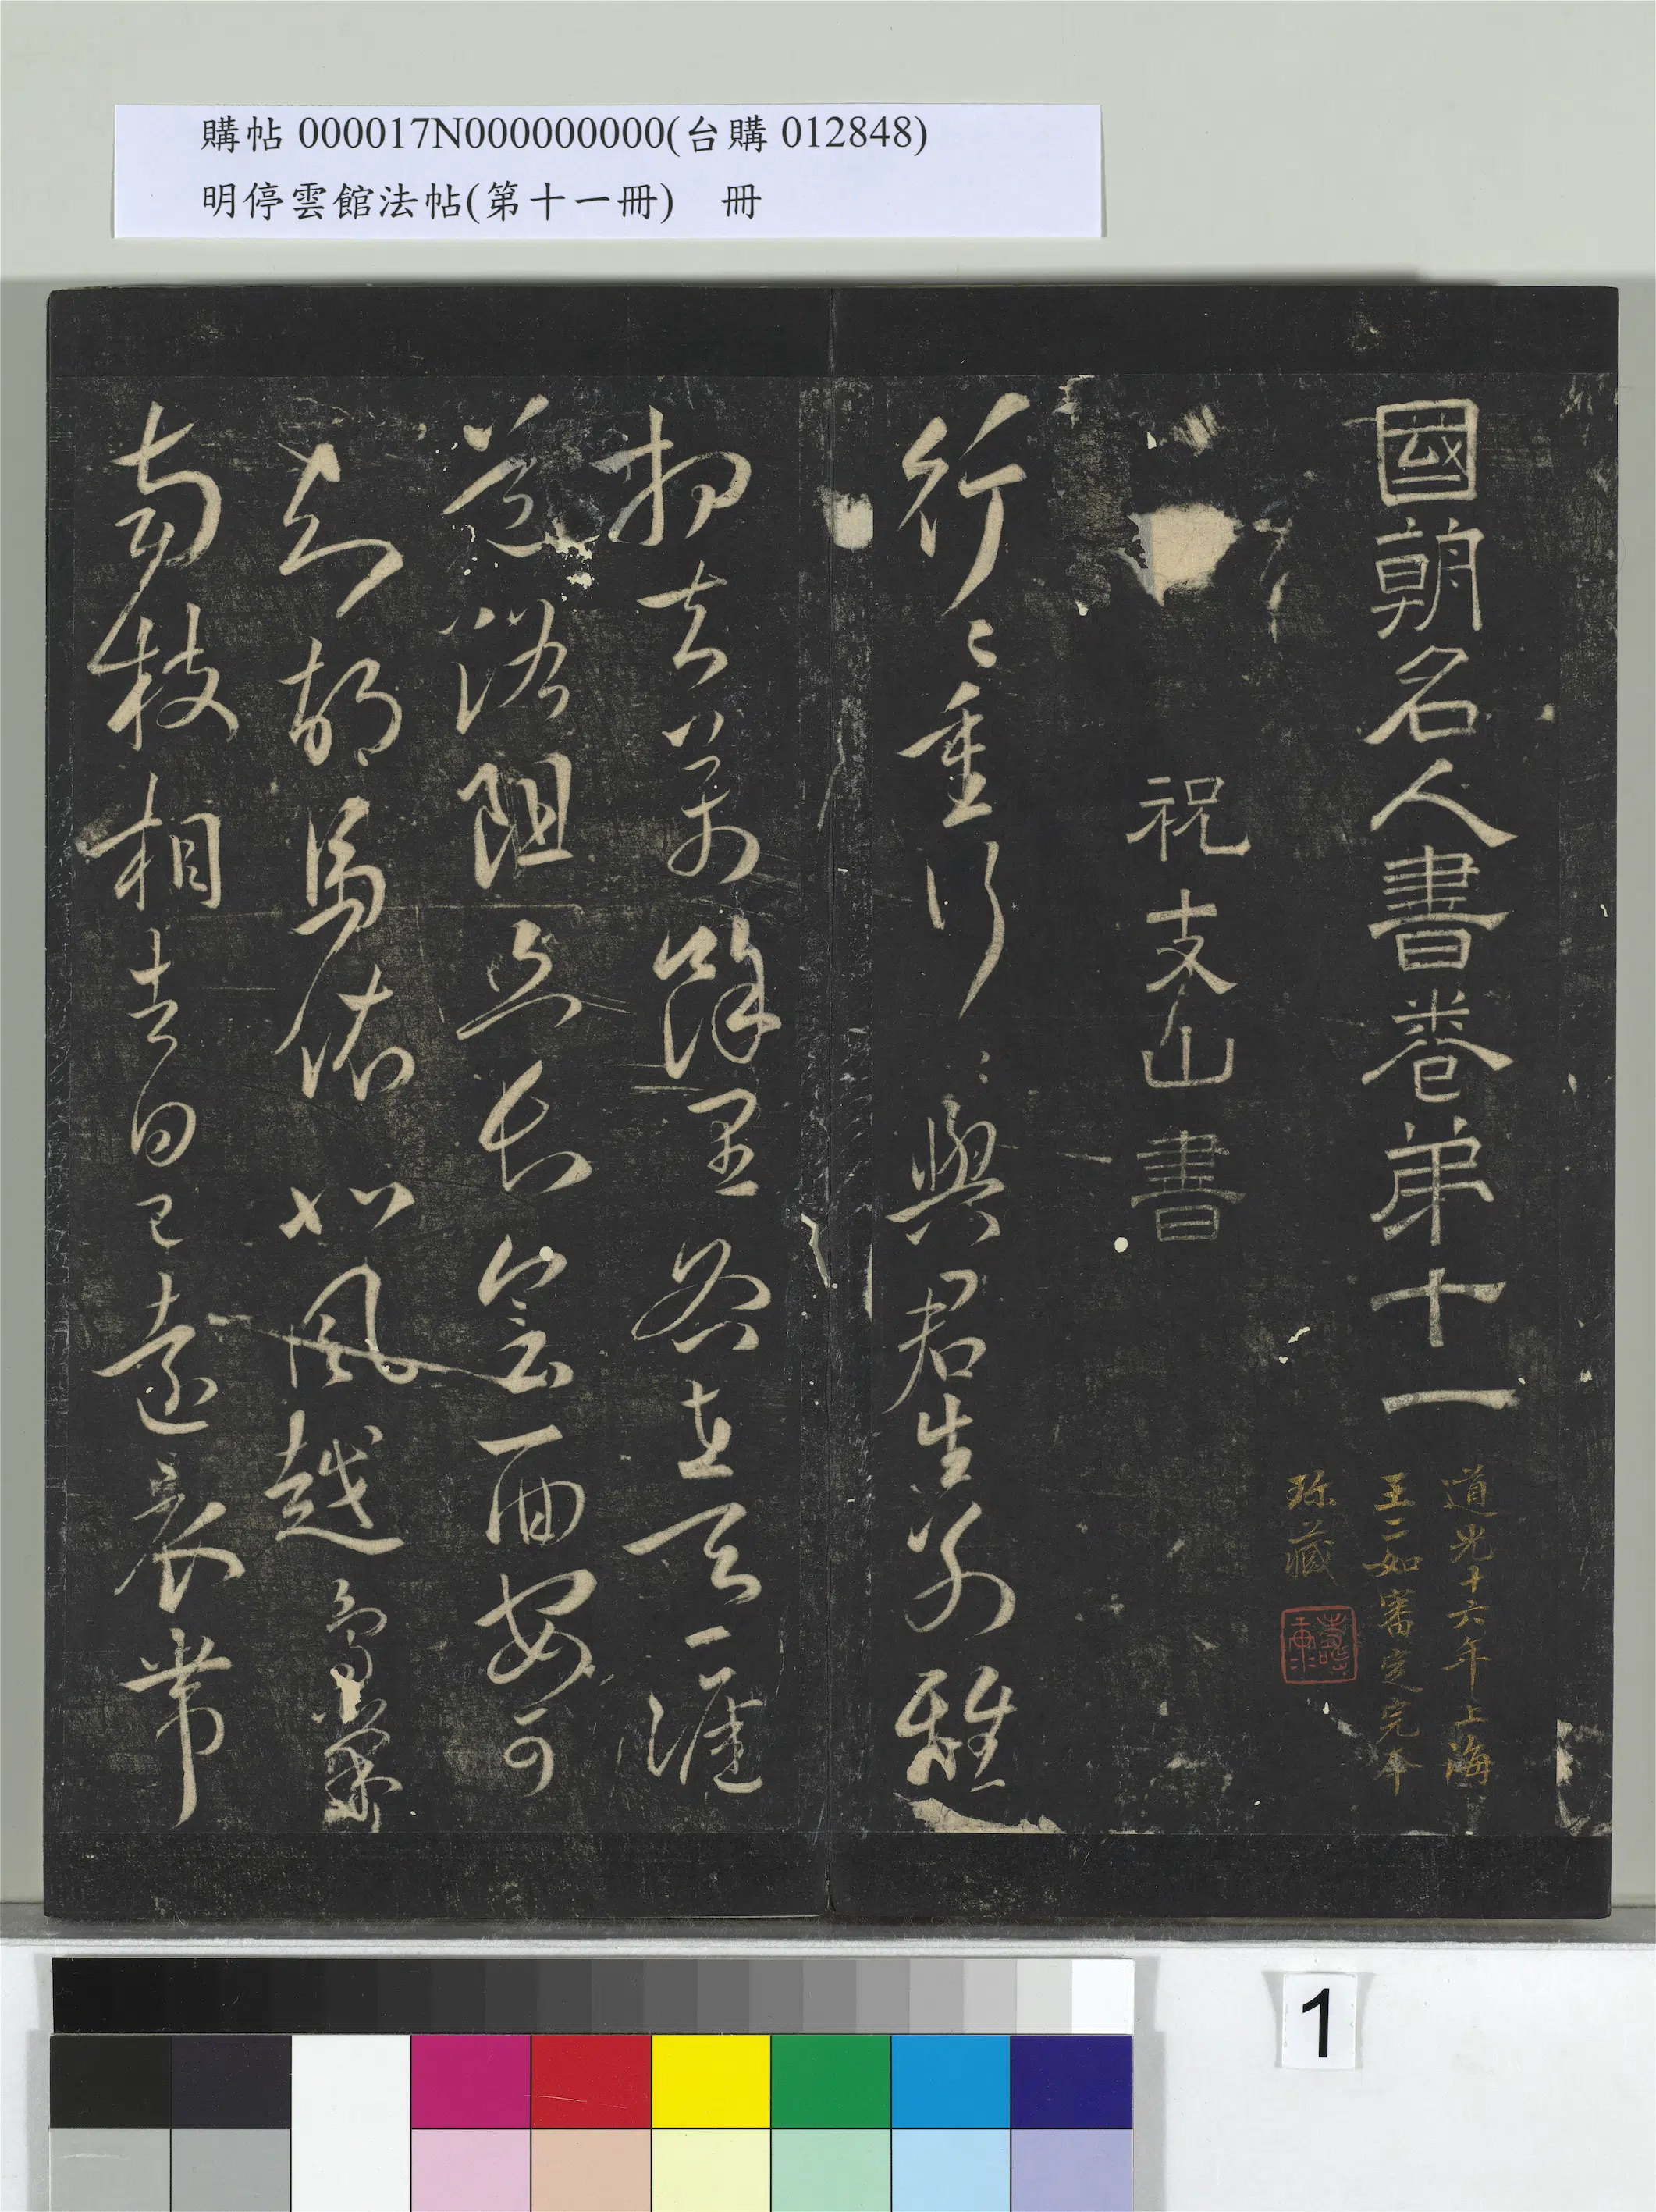 購帖 000017N000000000(台購 012848)
明停雲館法帖(第十一冊)　冊
國朝名人書卷弟十一
道光十六年上海
王二如審定完本
珎藏
祝支山書
行〻重行〻與君生別離
相去萬餘里各在天一涯
道路阻且長會面安可
知胡馬依北風越鳥巢
南枝相去日已遠衣帶
1